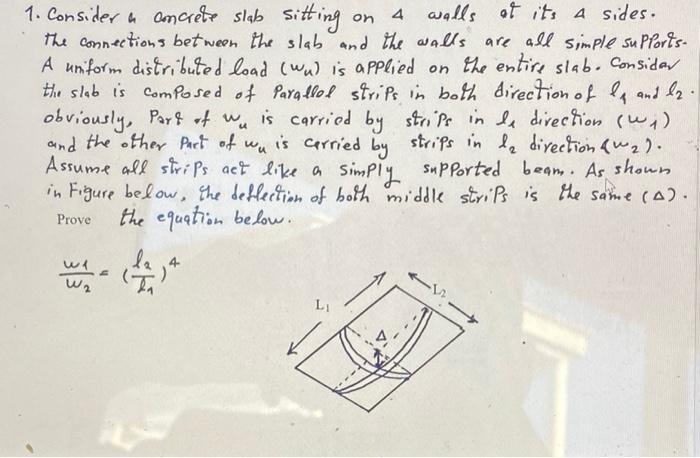 1. Consider a concrete slab sitting on 4 walls at its 4 sides.
The connections between the slab and the walls are all simple supports.
A uniform distributed load (wu) is applied on the entire slab. Consider
the slab is composed of Parallel strips in both direction of l1 and l2.
obviously, Part of wu is carried by strips in l1 direction (w1)
and the other Part of wu is carried by strips in l2 direction (w2).
Assume all strips act like a simply supported beam. As shown
in Figure below, the deflection of both middle strips is the same (Δ).
Prove the equation below.
w1/w2 = (l2/l1)^4
L1
L2
Δ